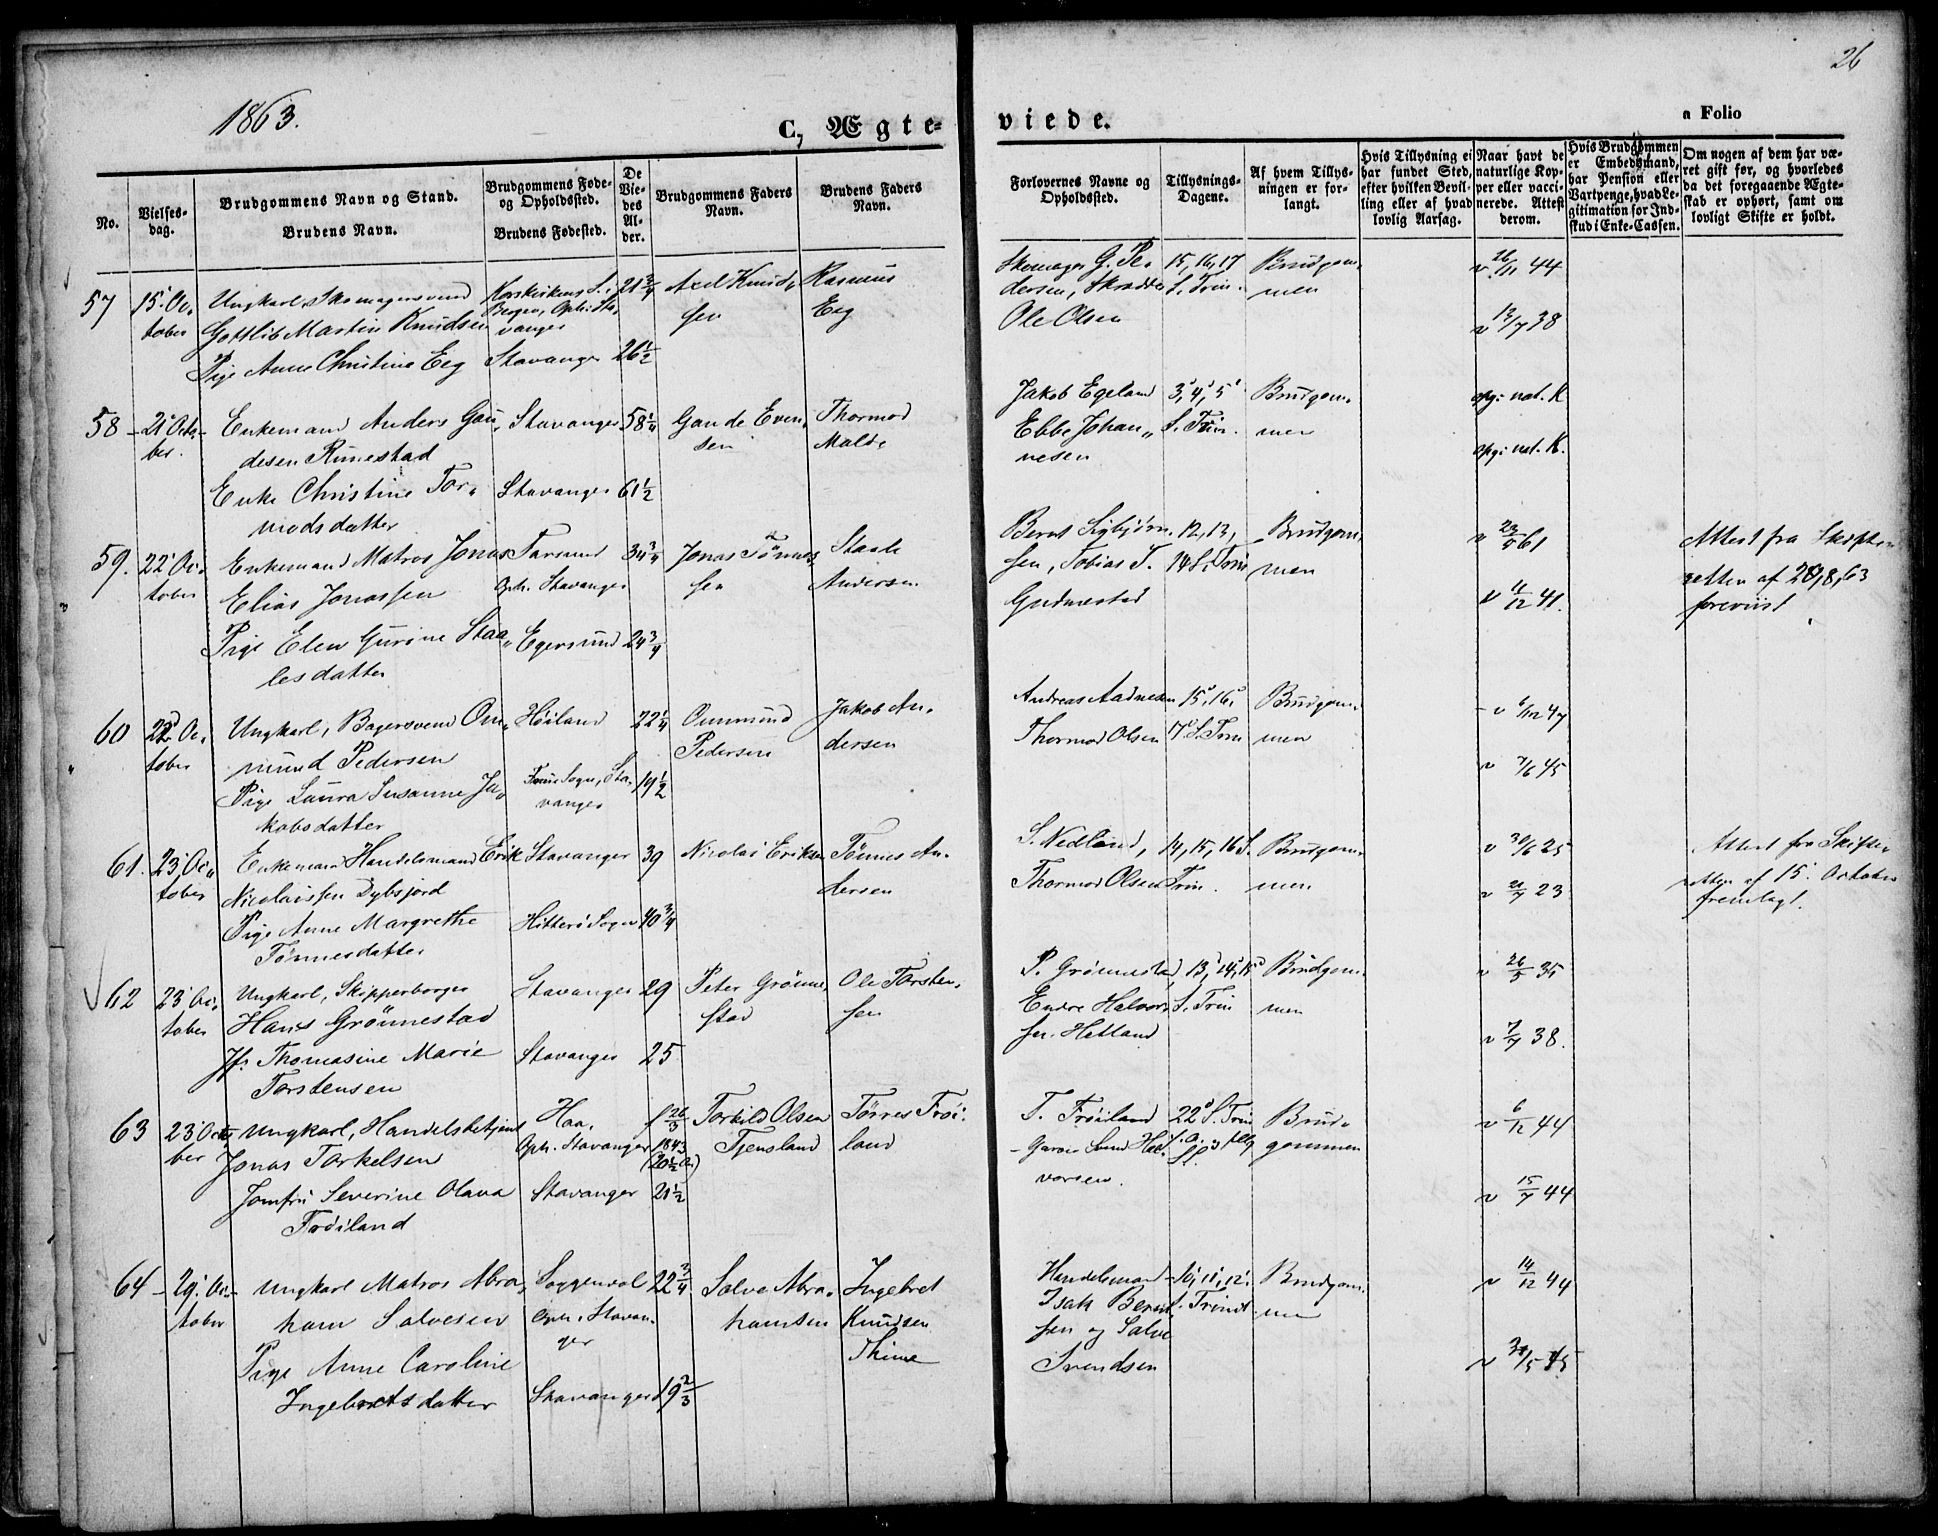 26
1863.
C, Ægte-
viede.
a Folio
No.
Vielses-
dag.
Brudgommens Navn og Stand.
Brudens Navn.
Brudgommens Føde-
og Opholdssted.
Brudens Fødested.
De
Vie-
des
Al-
der.
Brudgommens Faders
Navn.
Brudens Faders
Navn.
Forlovernes Navne og
Opholdssted.
Tillysnings-
Dagene.
Af hvem Tillys-
ningen er for-
langt.
Hvis Tillysning ei
har fundet Sted,
efter hvilken Bevil-
ling eller af hvad
lovlig Aarsag.
Naar havt de
naturlige Kop-
per eller vacci-
nerede. Attest
derom.
Hvis Brudgommen
er Embedsmand,
har Pension eller
Vartpenge, hvad Le-
gitimation for Ind-
skud i Enke-Cassen.
Om nogen af dem har væ-
ret gift før, og hvorledes
da det foregaaende Ægte-
skab er ophørt, samt om
lovligt Skifte er holdt.
57
15' Oc-
tober
Ungkarl, Skomagersvend
Gottlib Martin Knudsen
Pige Anne Christine Eeg
Korskirkens S. i
Bergen, Oph: Sta-
vanger
Stavanger
21 3/4
26 1/2
Axel Knud-
sen
Rasmus
Eeg
Skomager G. Pe-
dersen, Skrædder
Ole Olsen
15, 16, 17
S. Trin.
Brudgom-
men
v 26/11 44
v 13/7 38
58
21' Octo-
ber.
Enkemand Anders Gau-
desen Runestad
Enke Christine Tor-
modsdatter
Stavanger
Stavanger
58 1/4
61 1/2
Gaude Even-
sen
Thormod
Malde
Jakob Egeland
Ebbe Johan-
nesen
3', 4', 5'
S. Trin.
Brudgom-
men
opg: nat. K
opg: nat. K.
59.
22' Oc-
tober
Enkemand Matros Jonas
Elias Jonassen
Pige Elen Gurine Staa-
lesdatter
Farsund
Oph. Stavanger
Egersund
34 3/4
24 3/4
Jonas Tønnes-
sen
Staale
Andersen
Bernt Sigbjørn-
sen, Tobias T.
Gudmestad
12, 13,
14 S. Trin
Brudgom-
men
v 23/5 61
v 11/12 41.
Attest fra Skifte-
retten af 20,8,63
foreviist
60
22' Oc-
tober
Ungkarl, Bagersvend Om-
mund Pedersen
Pige Laura Susanne Ja-
kobsdatter
Høiland
Frue Sogn, Sta-
vanger
22 1/4
19 1/2
Ommund
Pedersen
Jakob An-
dersen
Andreas Aadnesen
Thormod Olsen
15', 16',
17' S. Trin
Brudgom-
men
v 6/12 47
v 7/6 45
61.
23' Oc-
tober
Enkemand Handelsmand Erik
Nicolaissen Dybsjord
Pige Anne Margrethe
Tønnesdatter
Stavanger
Hitterø Sogn
39
40 3/4
Nicolai Eriksen
Tønnes An-
dersen
S. Nedland,
Thormod Olsen
14, 15, 16 S.
Trin.
Brudgom-
men
v 30/6 25
v 21/7 23
Attest fra Skifte-
retten af 15. October
fremlagt.
62
23' Oc-
tober
Ungkarl, Skipperborger
Hans Grønnestad
Jfr. Thomasine Marie
Torstensen
Stavanger
Stavanger
29
25
Peter Grønne-
stad
Ole Torsten-
sen
P. Grønnestad,
Endre Halvor-
sen Hetland
13', 14', 15'
S. Trin
Brudgom-
men
v 26/5 35
v 7/7 38.
63
23' Octo-
ber
Ungkarl, Handelsbetjent
Jonas Torkelsen
Jomfru Severine Olava
Frøiland
Haa,
Oph. Stavanger
Stavanger
f 26/3
1843
(20 1/2 A.)
21 1/2
Torkild Olsen
Tjensland
Tørres Frøi-
land
T. Frøiland
Garver Svend Hal-
vorsen.
22' S. Trin
Brud-
gommen
v 6/12 44
v 15/7 44
64
29' Oc-
tober
Ungkarl Matros Abra-
ham Salvesen
Pige Anne Caroline
Ingebretsdatter
Soggendal
Oph. Stavan-
ger
Stavanger
22 3/4
19 2/3
Salve Abra-
hamsen
Ingebret
Knudsen
Thime
Handelsmand
Isak Bernt-
sen og Salve
Svendsen
10', 11', 12'
S. Trinit
Brudgom-
men
v 14/12 44
v 31/5 45